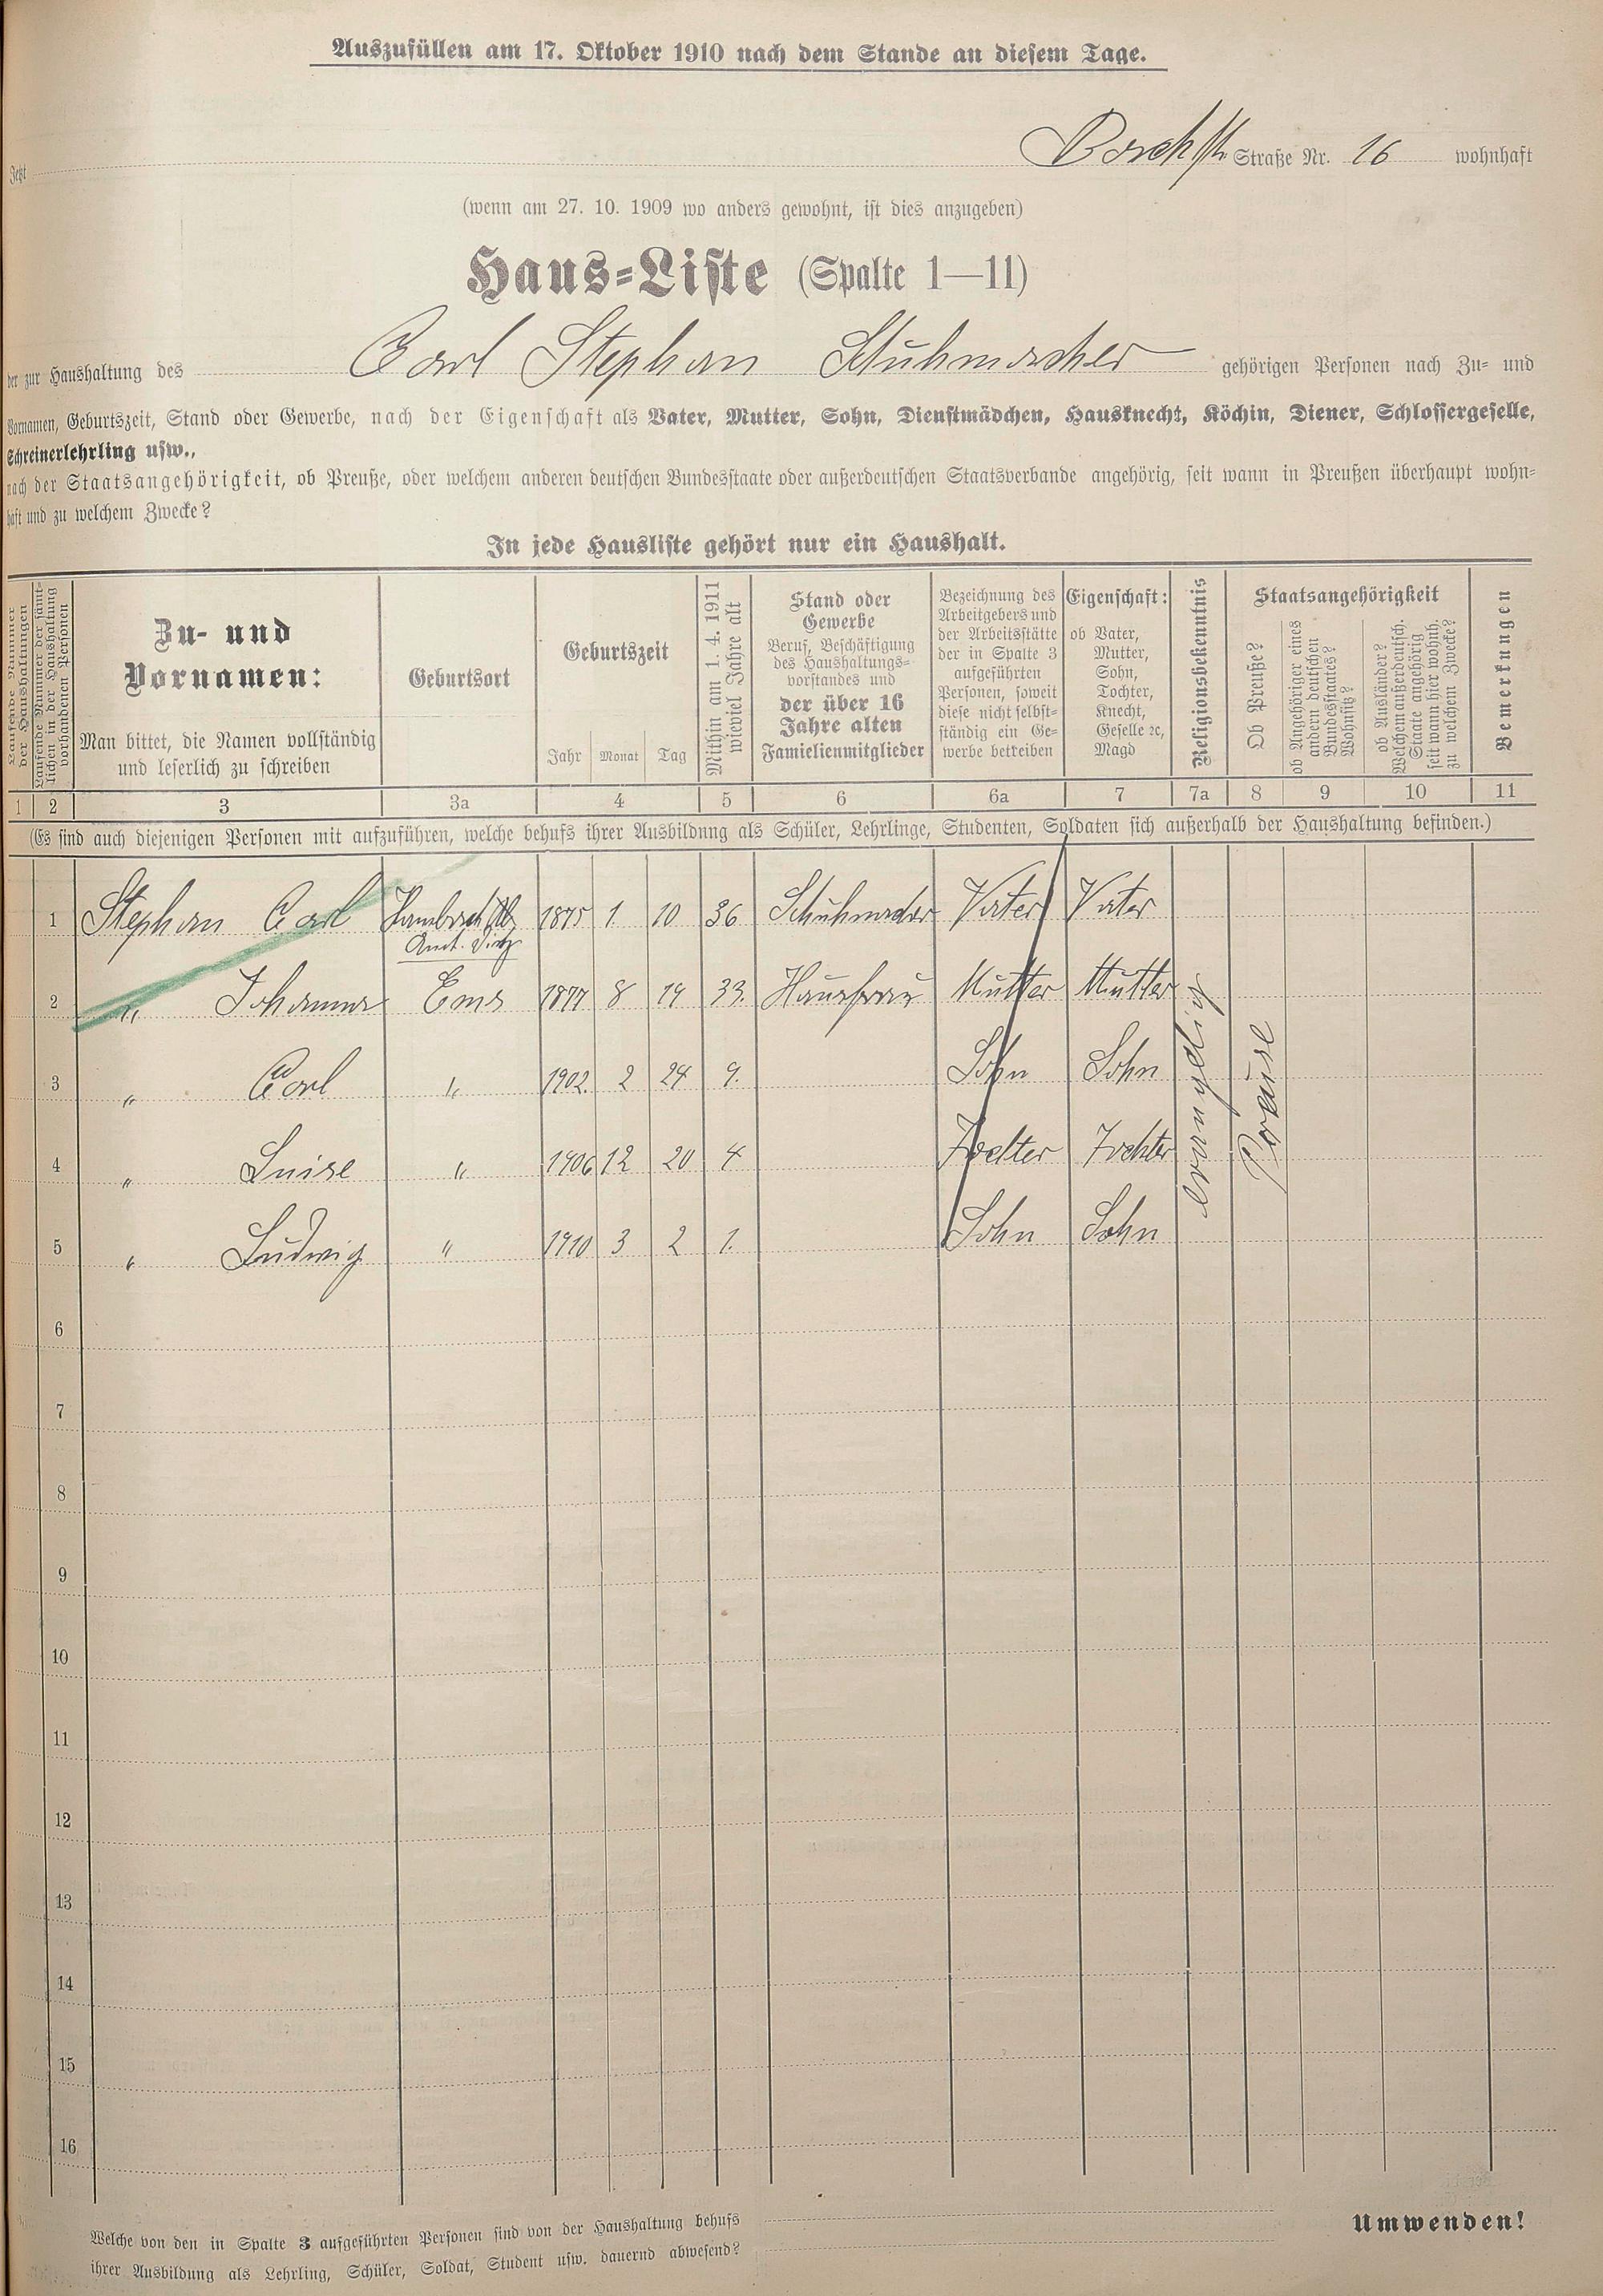 Auszufüllen am 17. Oktober 1910 nach dem Stande an diesem Tage.
Jetzt Bachstr. Straße Nr. 16 wohnhaft
(wenn am 27. 10. 1909 wo anders gewohnt, ist dies anzugeben)
Haus-Liste (Spalte 1—11)
der zur Haushaltung des Carl Stephan Schuhmacher gehörigen Personen nach Zu- und
Vornamen, Geburtszeit, Stand oder Gewerbe, nach der Eigenschaft als Vater, Mutter, Sohn, Dienstmädchen, Hausknecht, Köchin, Diener, Schlossergeselle,
Schreinerlehrling usw.,
nach der Staatsangehörigkeit, ob Preuße, oder welchem anderen deutschen Bundesstaate oder außerdeutschen Staatsverbande angehörig, seit wann in Preußen überhaupt wohn-
haft und zu welchem Zwecke?
In jede Hausliste gehört nur ein Haushalt.
Laufende Nummer
der Haushaltungen
Laufende Nummer der sämt-
lichen in der Haushaltung
vorhandenen Personen
Zu- und
Vornamen:
Man bittet, die Namen vollständig
und leserlich zu schreiben
Geburtsort
Geburtszeit
Jahr Monat Tag
Mithin am 1. 4. 1911
wieviel Jahre alt
Stand oder
Gewerbe
Beruf, Beschäftigung
des Haushaltungs-
vorstandes und
der über 16
Jahre alten
Famelienmitglieder
Bezeichnung des
Arbeitgebers und
der Arbeitsstätte
der in Spalte 3
aufgeführten
Personen, soweit
diese nicht selbst-
ständig ein Ge-
werbe betreiben
Eigenschaft:
ob Vater,
Mutter,
Sohn,
Tochter,
Knecht,
Geselle ꝛc,
Magd
Religionsbekenntnis
Staatsangehörigkeit
Ob Preuße?
ob Angehöriger eines
andern deutschen
Bundesstaates?
Wohnsitz?
ob Ausländer?
Welchem außerdeutsch.
Staate angehörig
seit wann hier wohnh.
zu welchem Zwecke?
Bemerkungen
1 2 3 3a 4 5 6 6a 7 7a 8 9 10 11
(Es sind auch diejenigen Personen mit aufzuführen, welche behufs ihrer Ausbildung als Schüler, Lehrlinge, Studenten, Soldaten sich außerhalb der Haushaltung befinden.)
1 Stephan Carl Hambach 1875 1. 10 36 Schuhmacher Vater Vater
Amt. Dietz
2 " Johanna Ems 1877 8 19 33. Hausfrau Mutter Mutter
3 " Carl " 1902. 2 24 9. Sohn Sohn
4 " Luise " 1906 12 20 4 Tochter Tochter
5 " Ludwig " 1910 3 2 1. Sohn Sohn
evangelig
Preuise
6
7
8
9
10
11
12
13
14
15
16
Welche von den in Spalte 3 aufgeführten Personen sind von der Haushaltung behufs
ihrer Ausbildung als Lehrling, Schüler, Soldat, Student usw. dauernd abwesend?
Umwenden!